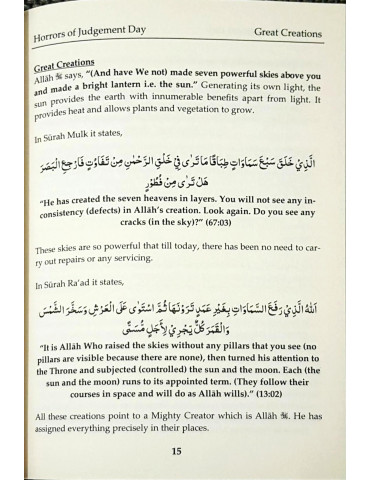 Horrors of Judgement Day Great Creations
Great Creations
Allāh ﷻ says, “(And have We not) made seven powerful skies above you
and made a bright lantern i.e. the sun.” Generating its own light, the
sun provides the earth with innumerable benefits apart from light. It
provides heat and allows plants and vegetation to grow.
In Sūrah Mulk it states,
الَّذِيْ خَلَقَ سَبْعَ سَمَاوَاتٍ طِبَاقًا مَا تَرٰى فِيْ خَلْقِ الرَّحْمٰنِ مِنْ تَفَاوُتٍ فَارْجِعِ الْبَصَرَ
هَلْ تَرٰى مِنْ فُطُوْرٍ
“He has created the seven heavens in layers. You will not see any in-
consistency (defects) in Allāh’s creation. Look again. Do you see any
cracks (in the sky)?” (67:03)
These skies are so powerful that till today, there has been no need to car-
ry out repairs or any servicing.
In Sūrah Ra’ad it states,
اَللّٰهُ الَّذِيْ رَفَعَ السَّمَاوَاتِ بِغَيْرِ عَمَدٍ تَرَوْنَهَا ثُمَّ اسْتَوٰى عَلَى الْعَرْشِ وَسَخَّرَ الشَّمْسَ
وَالْقَمَرَ كُلٌّ يَجْرِيْ لِأَجَلٍ مُّسَمًّى
“It is Allāh Who raised the skies without any pillars that you see (no
pillars are visible because there are none), then turned his attention to
the Throne and subjected (controlled) the sun and the moon. Each (the
sun and moon) runs to its appointed term. (They follow their
courses in space and will do as Allāh wills).” (13:02)
All these creations point to a Mighty Creator which is Allāh ﷻ. He has
assigned everything precisely in their places.
15